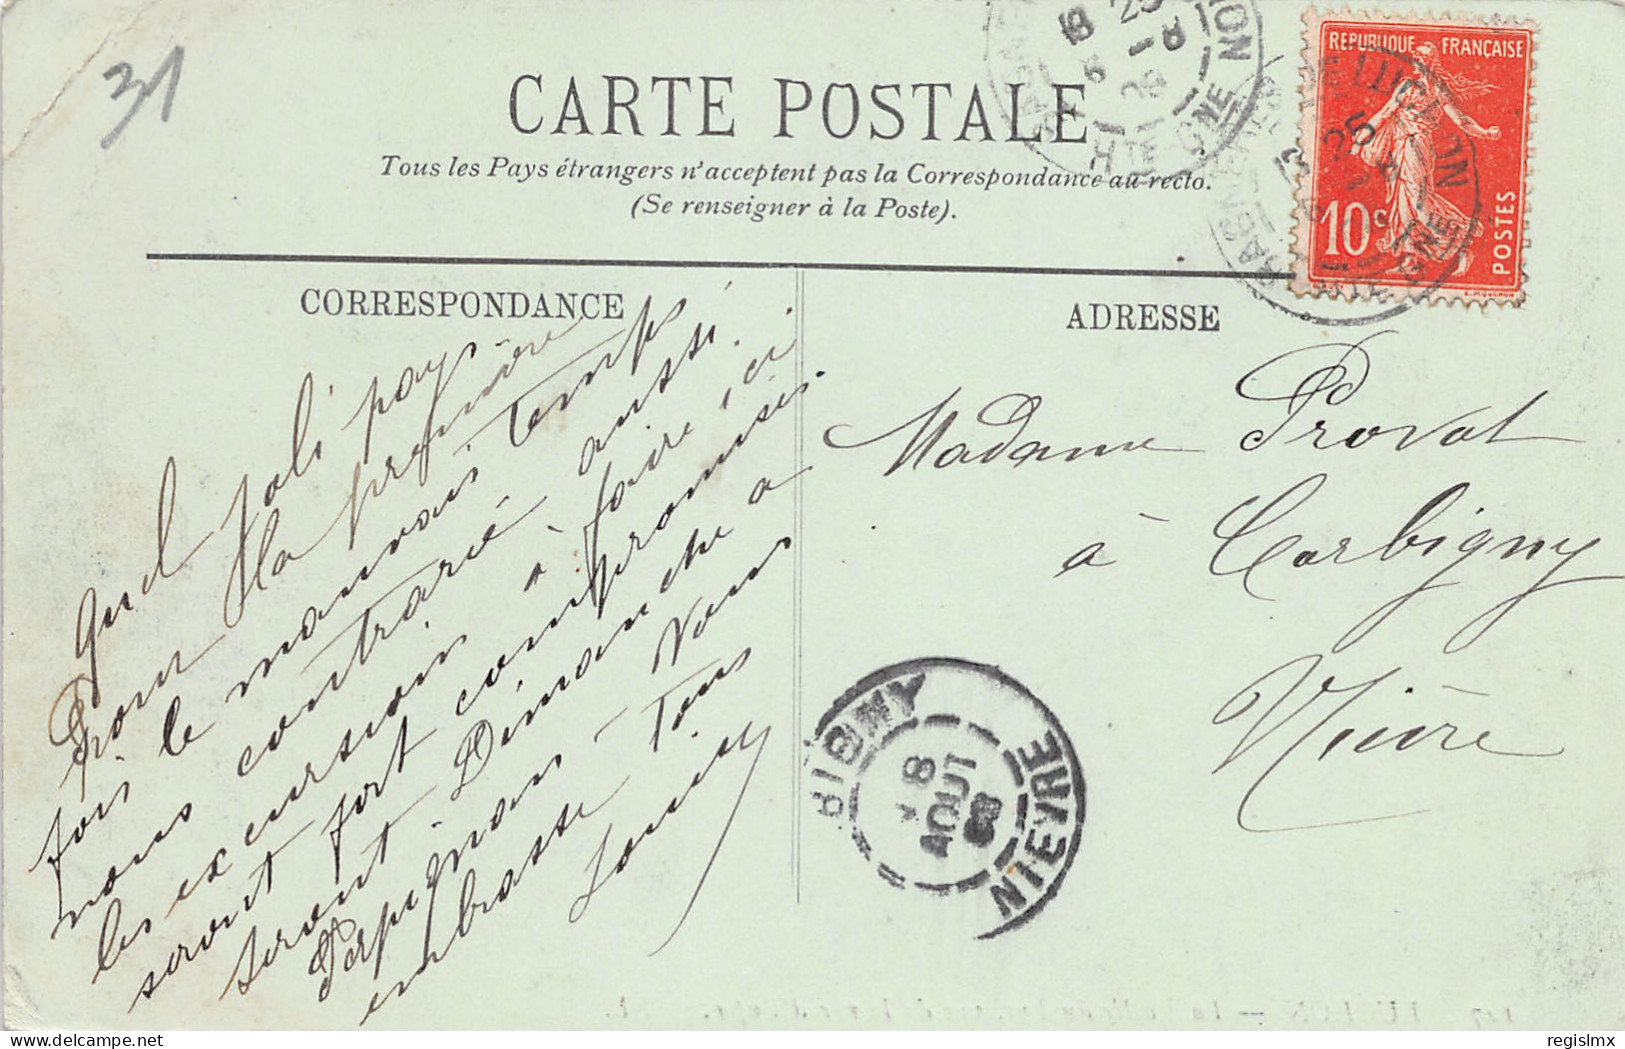 31
CARTE POSTALE
Tous les Pays étrangers n'acceptent pas la Correspondance au recto.
(Se renseigner à la Poste).
REPUBLIQUE FRANÇAISE
10c
POSTES
CORRESPONDANCE
ADRESSE
Quel joli pays
Pour la première
fois le mauvais temps
nous contrarie aussi.
les excursions à faire ici
seront fort compromises
seront Dimanche a
Perpignan - Vous
embrasse Tous
Madame Provot
à Corbigny
Nièvre
8
AOUT
08
NIEVRE
LUCHON
HTE
regislmx